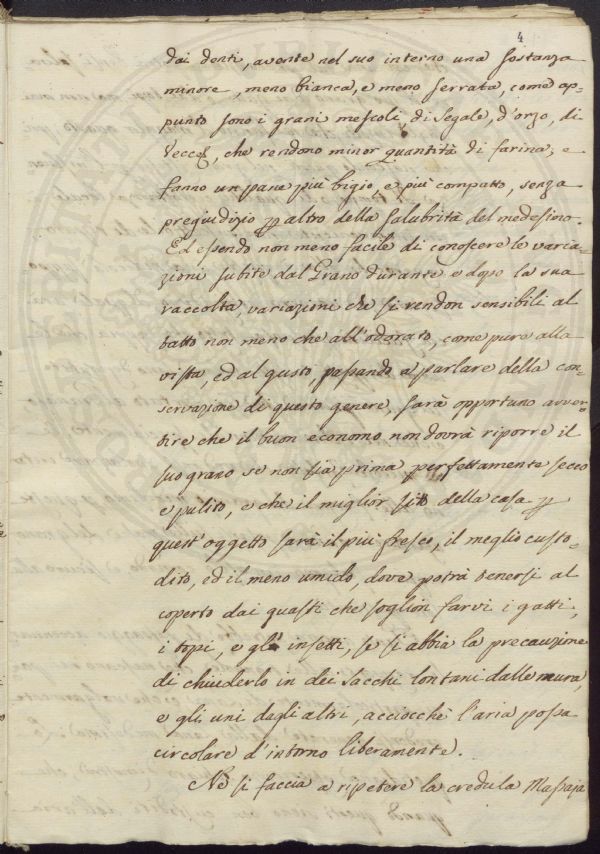 4
dai denti, avente nel suo interno una sostanza
minore, meno bianca, e meno serrata, come ap-
punto sono i grani mescoli, di Segale, d'orzo, di
Vecce, che rendono minor quantità di farina; e
fanno un pane più bigio, e più compatto, senza
pregiudizio p altro della salubrità del medesimo.
Ed essendo non meno facile di conoscere le varia-
zioni subite dal Grano durante e dopo la sua
raccolta, variazioni che si rendon sensibili al
tatto non meno che all'odorato, come pure alla
vista, ed al gusto, passando a parlare della con-
servazione di questo genere, sarà opportuno avver-
tire che il buon economo non dovrà riporre il
suo grano se non sia prima perfettamente secco
e pulito, e che il miglior sito della casa p
quest'oggetto sarà il più fresco, il meglio custo-
dito, ed il meno umido, dove potrà tenersi al
coperto dai guasti che soglion farvi i gatti,
i topi, e gl'insetti, se si abbia la precauzione
di chiuderlo in dei sacchi lontani dalle mura,
e gli uni dagli altri, acciocchè l'aria possa
circolare d'intorno liberamente.
Nè si faccia a ripetere la credula Massaja